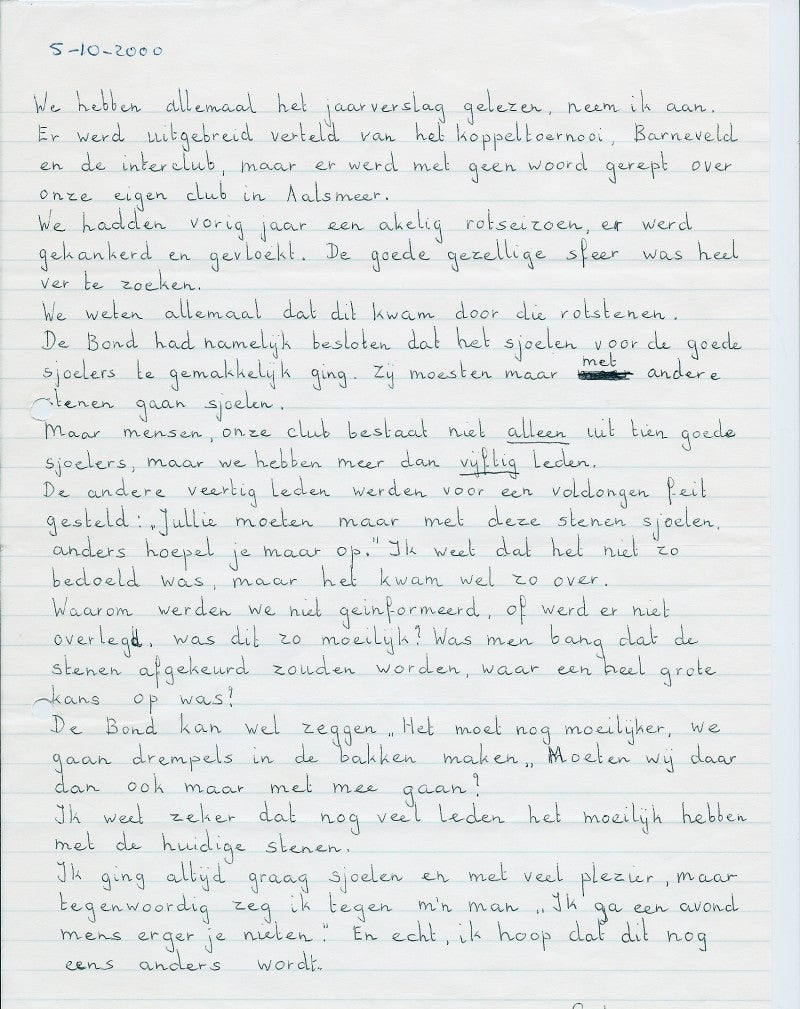 5-10-2000
We hebben allemaal het jaarverslag gelezen, neem ik aan.
Er werd uitgebreid verteld van het koppeltoernooi, Barneveld
en de interclub, maar er werd met geen woord gerept over
onze eigen club in Aalsmeer.
We hadden vorig jaar een akelig rotseizoen, er werd
gekankerd en gevloekt. De goede gezellige sfeer was heel
ver te zoeken.
We weten allemaal dat dit kwam door die rotstenen.
De Bond had namelijk besloten dat het sjoelen voor de goede
sjoelers te gemakkelijk ging. Zij moesten maar met andere
stenen gaan sjoelen.
Maar mensen, onze club bestaat niet alleen uit tien goede
sjoelers, maar we hebben meer dan vijftig leden.
De andere veertig leden werden voor een voldongen feit
gesteld: „Jullie moeten maar met deze stenen sjoelen,
anders hoepel je maar op." Ik weet dat het niet zo
bedoeld was, maar het kwam wel zo over.
Waarom werden we niet geinformeerd, of werd er niet
overlegd, was dit zo moeilijk? Was men bang dat de
stenen afgekeurd zouden worden, waar een heel grote
kans op was?
De Bond kan wel zeggen „Het moet nog moeilijker, we
gaan drempels in de bakken maken„ Moeten wij daar
dan ook maar met mee gaan?
Ik weet zeker dat nog veel leden het moeilijk hebben
met de huidige stenen.
Ik ging altijd graag sjoelen en met veel plezier, maar
tegenwoordig zeg ik tegen m'n man „Ik ga een avond
mens erger je nieten." En echt, ik hoop dat dit nog
eens anders wordt.